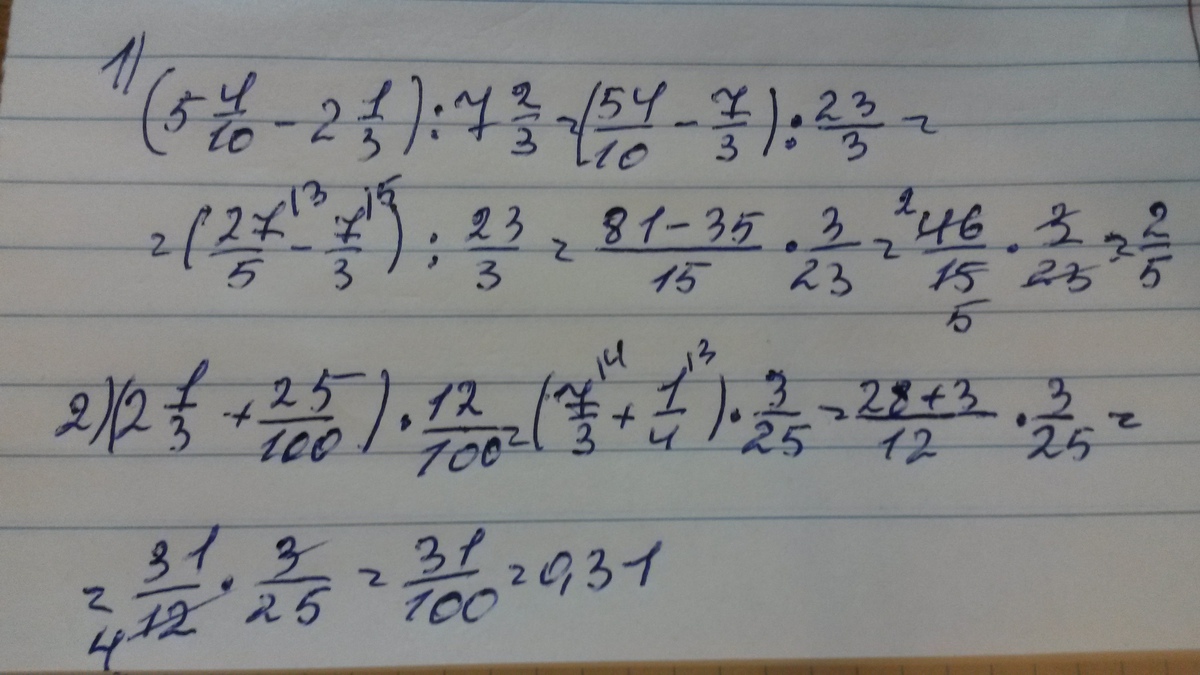 1) (5 4/10 - 2 1/3) : 7 2/3 = (54/10 - 7/3) : 23/3 =
= (27/5 |3 - 7/3 |5) : 23/3 = (81-35)/15 · 3/23 = 2 46/15 5 · 3/23 = 2/5
2) (2 1/3 + 25/100) · 12/100 = (7/3 |4 + 1/4 |3) · 3/25 = (28+3)/12 · 3/25 =
= 31/12 4 · 3/25 = 31/100 = 0,31